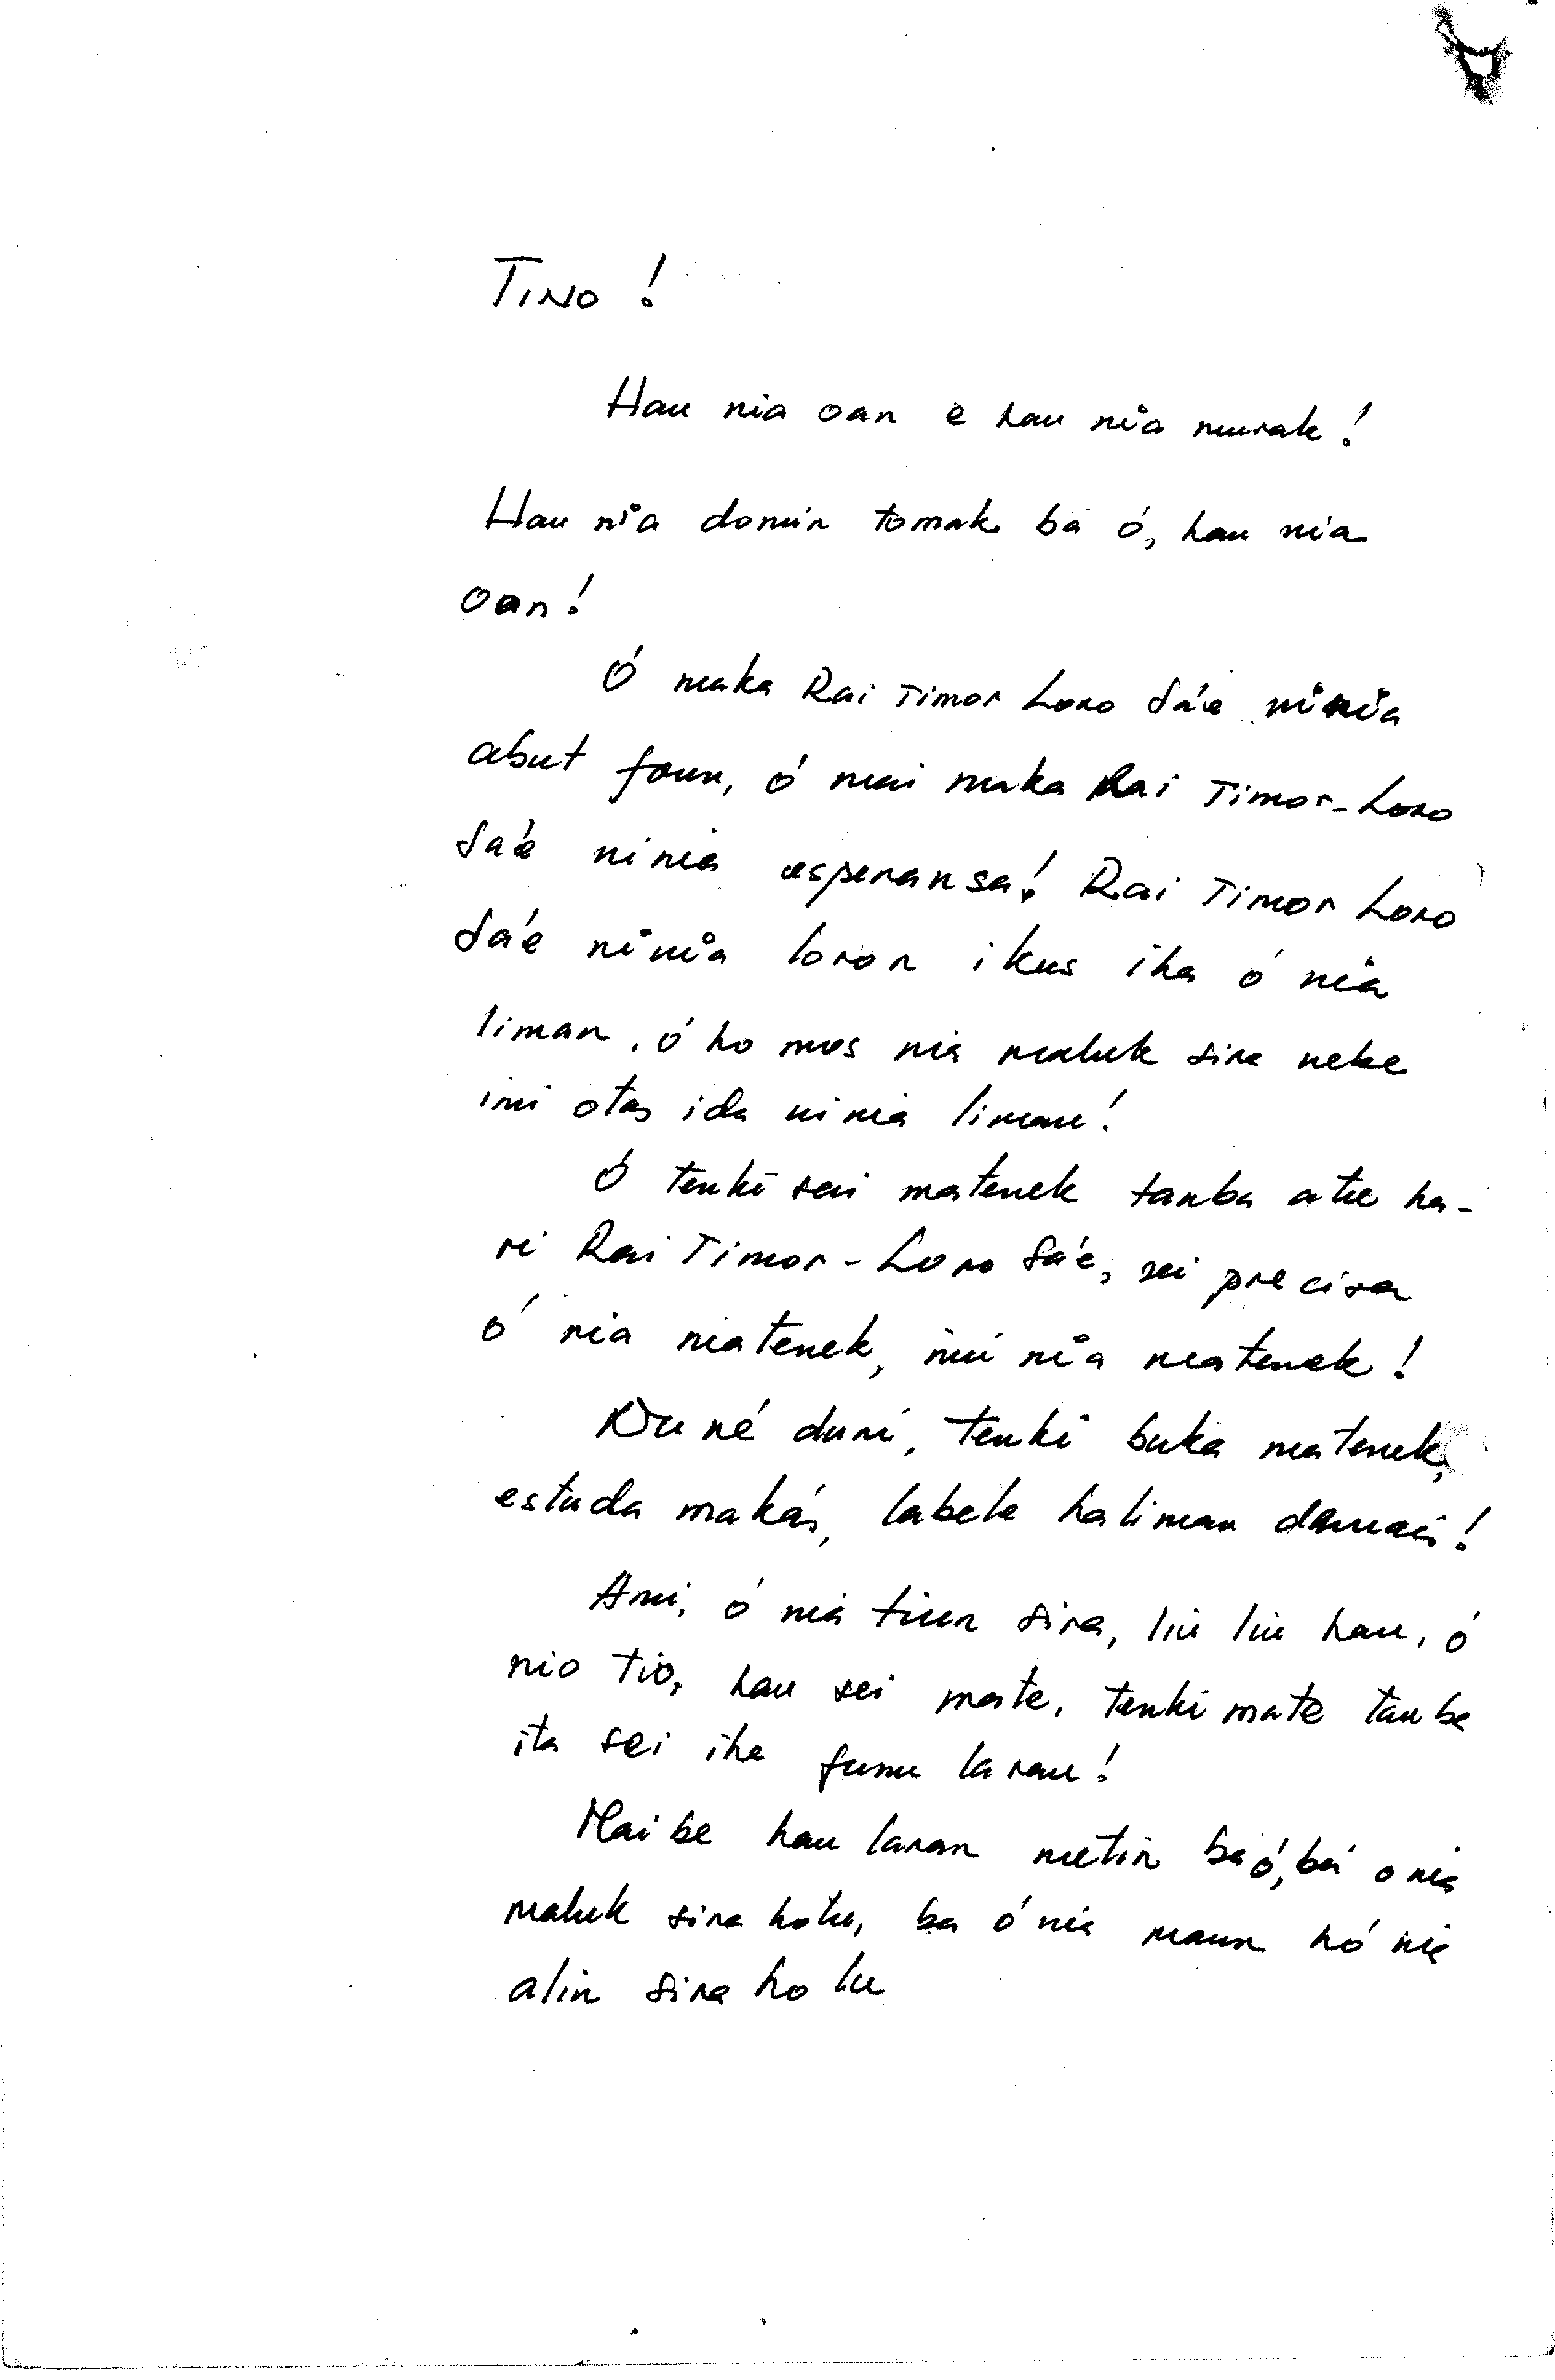 TINO !
Hau nia oan e hau nia murak !
Hau nia domin tomak ba ó, hau nia
oan !
Ó maka Rai Timor Loro Sáe ninia
abut foun, ó mai maka Rai Timor-Loro
Sa'e ninia esperansa! Rai Timor Loro
Sá'e ninia loron ikus iha ó nia
liman, ó ho mos nia maluk sira nebe
imi otas ida ninia liman!
Ó tenki sei matenek tanba atu ha-
ri Rai Timor-Loro Sá'e, sei precisa
ó nia matenek, imi nia matenek !
Du né duni, tenki buka matenek,
estuda makás, labele haliman demais!
Ami, ó nia tiun sira, liu liu hau, ó
nio tio, hau sei mate, tenki mate tanbe
ita sei iha funu laran!
Maibe hau laran metin ba ó, bá o nia
maluk sira hotu, ba ó nia maun hó nia
alin sira hotu